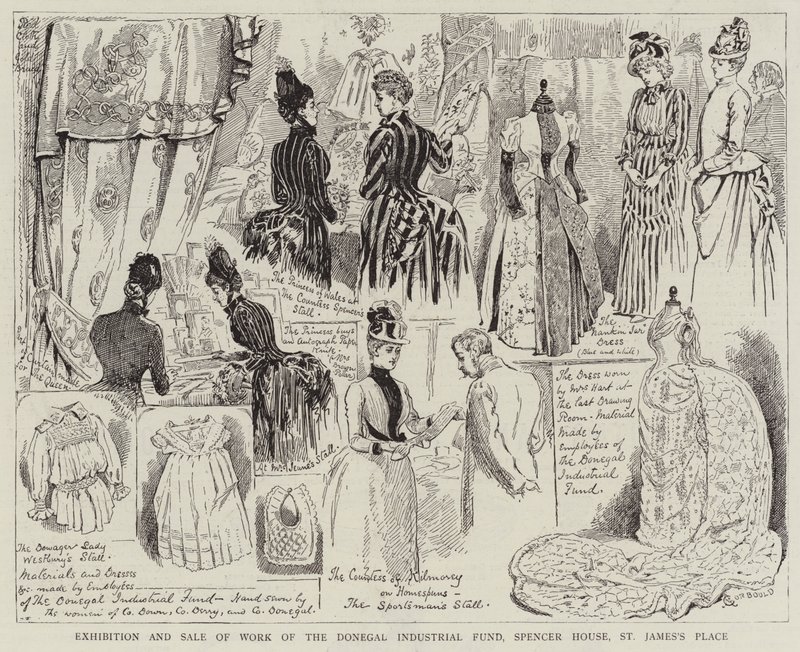 Red
Cloth
and
Gold
Braid
Part of
a Curtain made
for The Queen
The Princess of Wales at
The Countess Spencer's
Stall.
The Princess buys
an Autograph Paper
Knife
of Mrs
At Mrs Jeune's Stall
The
"Nankin Jar"
Dress
(Blue and White)
The Dress worn
by Mrs Hart at
The last Drawing
Room. Material
made by
employees of
The Donegal
Industrial
Fund.
The Dowager Lady
Westbury's Stall.
Materials and Dresses
&c. made by Employees
of The Donegal Industrial Fund — Hand sewn by
The women of Co. Down, Co. Derry, and Co. Donegal.
The Countess of Kilmorey
on Homespuns —
The Sportsman's Stall.
CORBOULD
EXHIBITION AND SALE OF WORK OF THE DONEGAL INDUSTRIAL FUND, SPENCER HOUSE, ST. JAMES'S PLACE